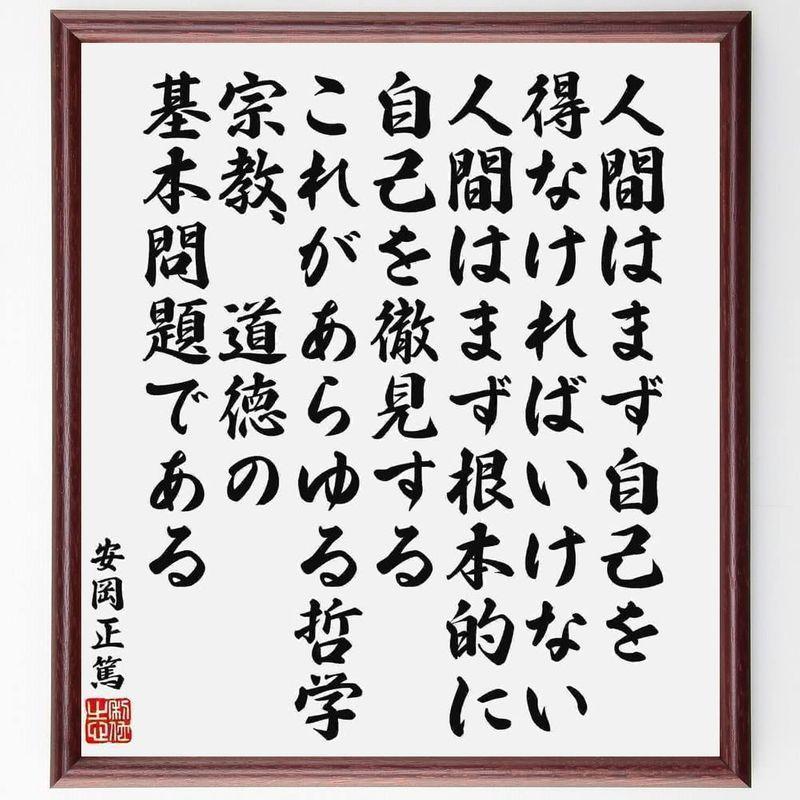 人間はまず自己を
得なければいけない
人間はまず根本的に
自己を徹見する
これがあらゆる哲学
宗教、道徳の
基本問題である
安岡正篤